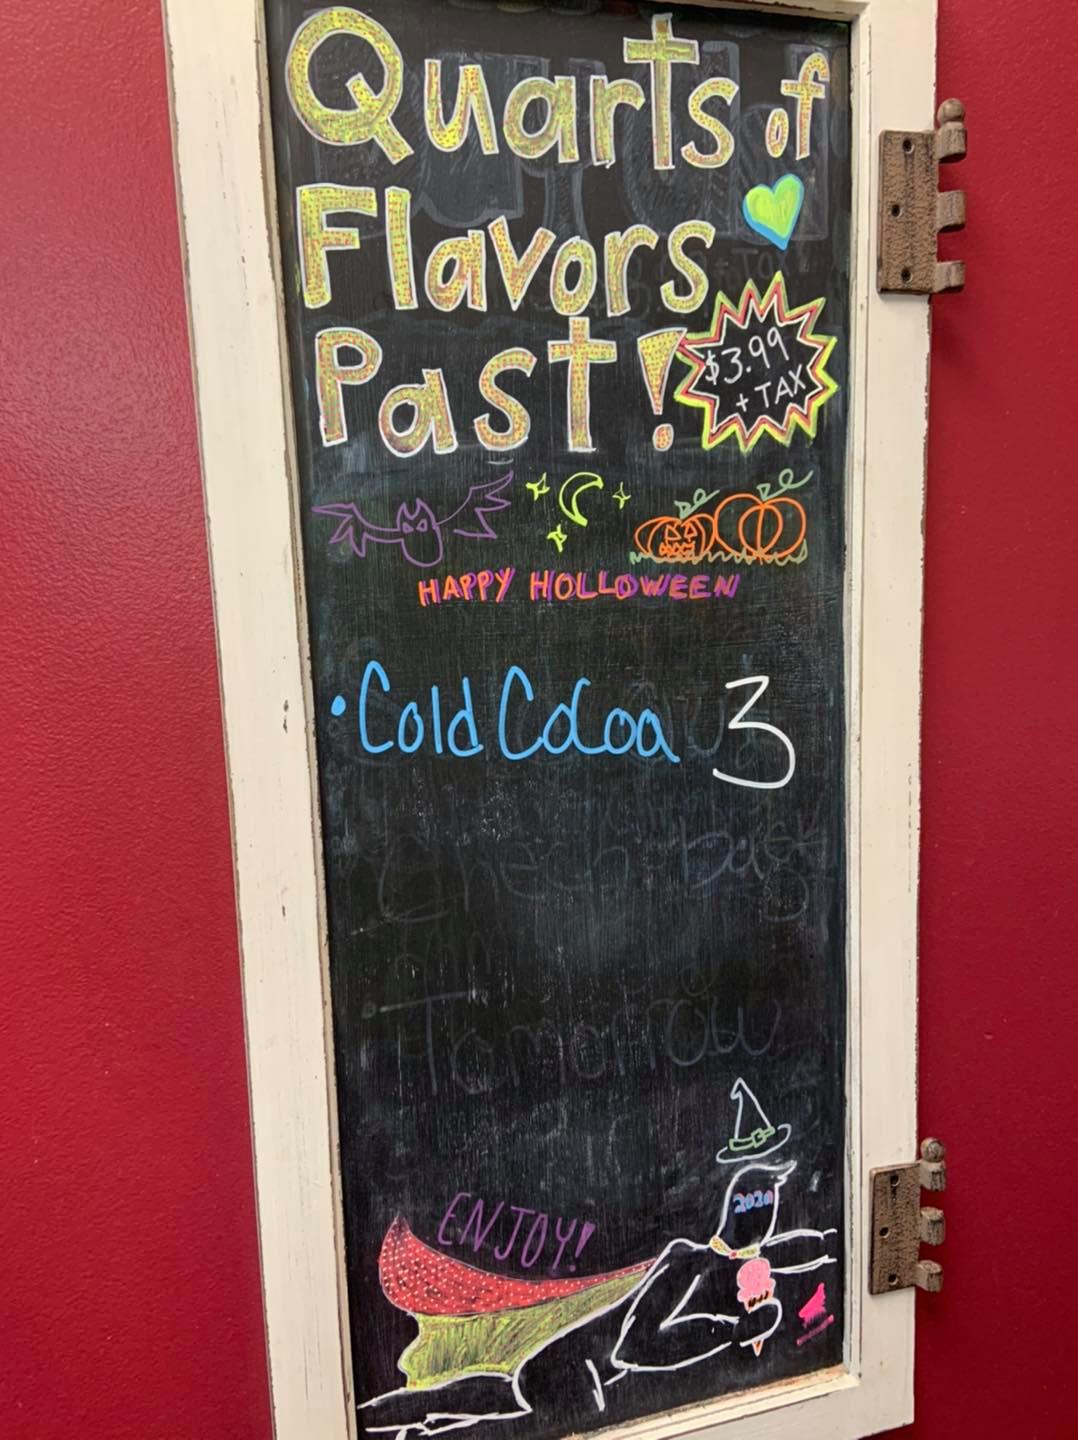 Quarts of
Flavors
Past!
$3.99
+ TAX
HAPPY HOLLOWEEN
• Cold Cocoa 3
Check back
Tomorrow
ENJOY!
2020